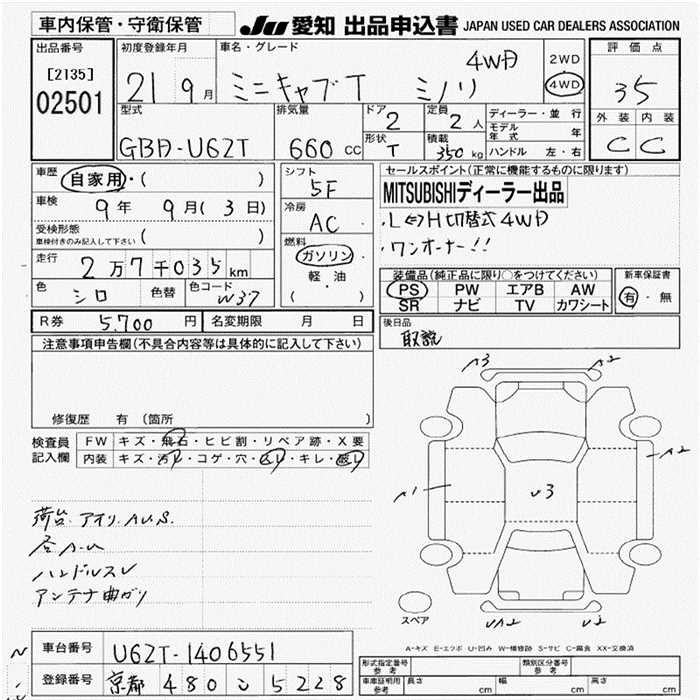 車内保管・守衛保管 JU 愛知 出品申込書 JAPAN USED CAR DEALERS ASSOCIATION
出品番号 初度登録年月 車名・グレード 評価点
[2135] 4WD 2WD
02501 21 9月 ミニキャブT ミノリ 4WD 35
型式 排気量 ドア 2 定員 2人 ディーラー・並行 外装 内装
モデル年式 年
GBD-U62T 660cc 形状 T 積載 350kg ハンドル 左・右 C C
車歴 自家用・( ) シフト 5F セールスポイント(正常に機能するものに限ります)
MITSUBISHIディーラー出品
車検 9年 9月(3日) 冷房 AC ・L⇔H切替式4WD
受検形態 ( ) ・ワンオーナー!!
車検付きのみ記入して下さい
燃料 ガソリン
走行 2万7千035km 軽・油 装備品(純正品に限り○をつけてください) 新車保証書
色 シロ 色替 色コード W37 ( ) PS PW エアB AW 有・無
SR ナビ TV カワシート
R券 5,700円 名変期限 月 日 後日品
取説
注意事項申告欄(不具合内容等は具体的に記入して下さい)
A3 A2
修復歴 有 (箇所
検査員 FW キズ・飛石・ヒビ割・リペア跡・X要
記入欄 内装 キズ・汚レ・コゲ・穴・・キレ・破レ
A2
A1 U3
荷台 アオリ.A.U.S.
A.U
ハンドルスレ
アンテナ曲がり
スペア UA2 U2
A-キズ E-エクボ U-凹み W-補修跡 S-サビ C-腐食 XX-交換済
車台番号 U62T-1406551
登録番号 京都 480 い 5228
形式指定番号 参考 類別区分番号 参考
車庫証明用 参考 長さ cm 幅 cm 高さ cm